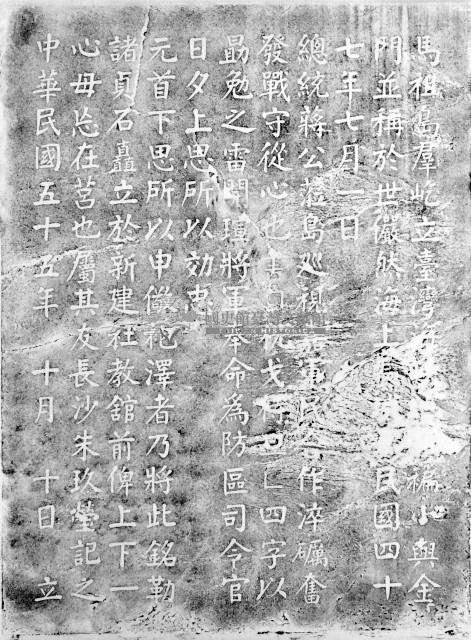 馬祖島羣屹立臺灣海 褊小與金
門並稱於世儼然海上長 民國四十
七年七月一日
總統蔣公蒞島巡視 軍民 作淬礪奮
發戰守從心也 書 枕戈待旦 四字以
勗勉之雷開瑄將軍奉命為防區司令官
日夕上思所以効忠
元首下思所以申儆袍澤者乃將此銘勒
諸貞石矗立於新建社教舘前俾上下一
心毋忘在莒也屬其友長沙朱玖瑩記之
中華民國五十五年 十月 十日 立